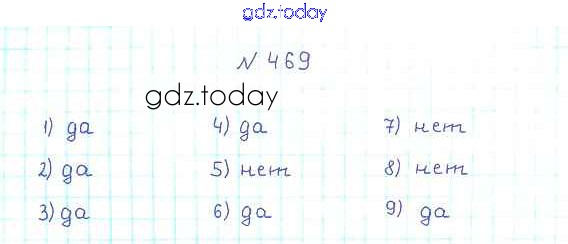 gdz.today
№ 469
gdz.today
1) да 4) да 7) нет
2) да 5) нет 8) нет
3) да 6) да 9) да